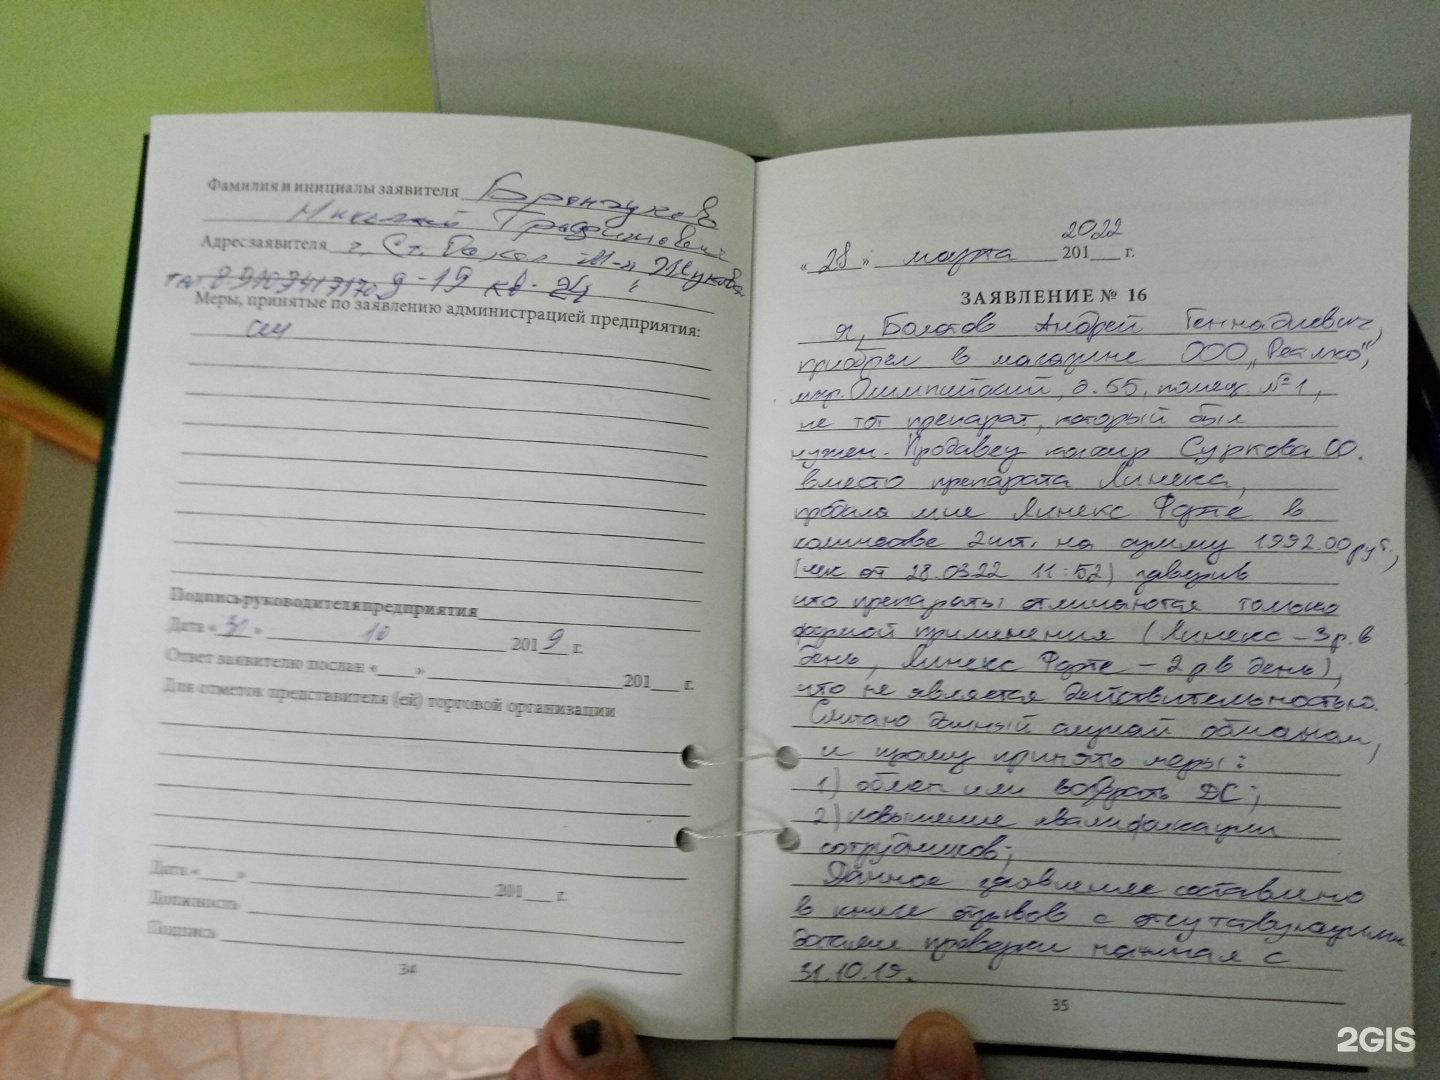 Фамилия и инициалы заявителя
Николай
Адрес заявителя г. Ст. Оскол м-н Жукова
д-19 кв.
Меры, принятые по заявлению администрацией предприятия:
Подпись руководителя предприятия
Дата «31» 10 2019 г.
Ответ заявителю послан «___» 201__ г.
Для отметок представителя (ей) торговой организации
Дата «___» 201__ г.
Должность
Подпись
34
«28» марта 2022 201__ г.
ЗАЯВЛЕНИЕ № 16
Я, Болотов Андрей Геннадиевич,
приобрел в магазине ООО „Реалко",
мкр. Олимпийский, д. 55, помещ. №1,
не тот препарат, который был
нужен. Продавец кассир Суркова О.О.
вместо препарата Линекс,
продала мне Линекс Форте в
количестве 2 шт. на сумму 1992.00 руб.,
(чек от 28.03.22 11:52) заверив
что препараты отличаются только
формой применения (Линекс – 3 р. в
день, Линекс Форте – 2 р в день),
что не является действительностью.
Считаю данный случай обманом,
и прошу принять меры:
1) обмен или возврат ДС;
2) повышение квалификации
сотрудников;
Данное заявление составлено
в книге отзывов с отсутствующими
датами проверки начиная с
31.10.19.
35
2GIS